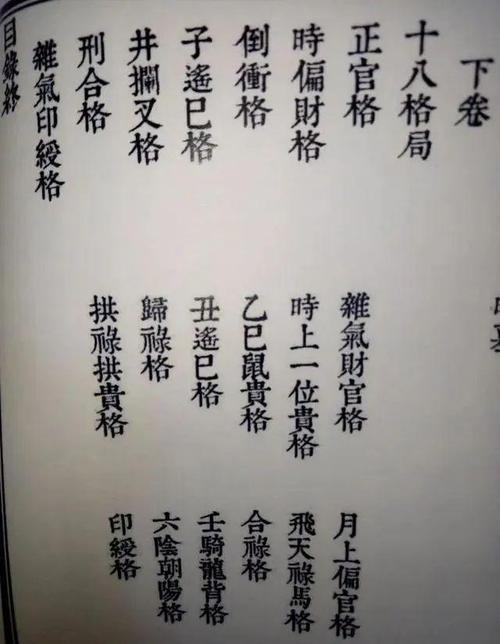 下卷
十八格局
正官格 雜氣財官格 月上偏官格
時偏財格 時上一位貴格 飛天祿馬格
倒衝格 乙巳鼠貴格 合祿格
子遙巳格 丑遙巳格 壬騎龍背格
井攔叉格 歸祿格 六陰朝陽格
刑合格 拱祿拱貴格 印綬格
雜氣印綬格
目錄終